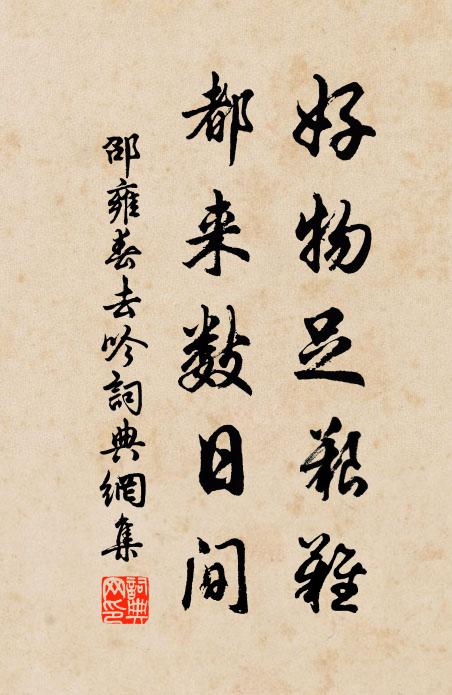 好物足艱難
都来数日间
邵雍春去吟詞典網集
詞典网印